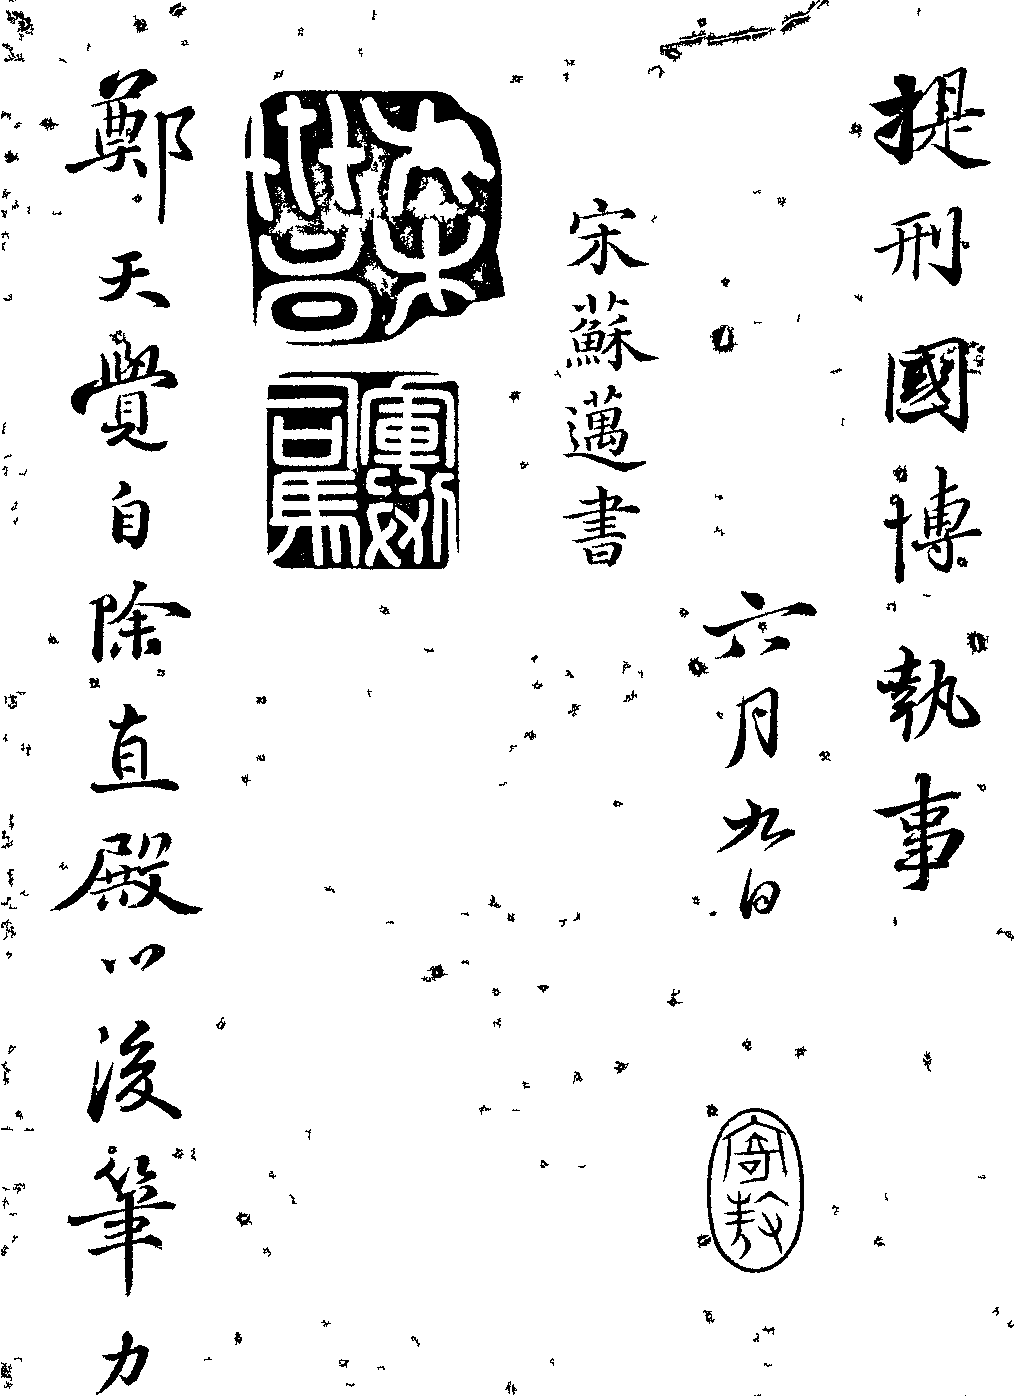 提刑國博執事
六月九日
宋蘇邁書
鄭天覺自除直殿以後筆力